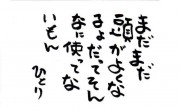 まだまだ
頭がよくな
るよだってそん
なに使ってな
いもん
ひとり